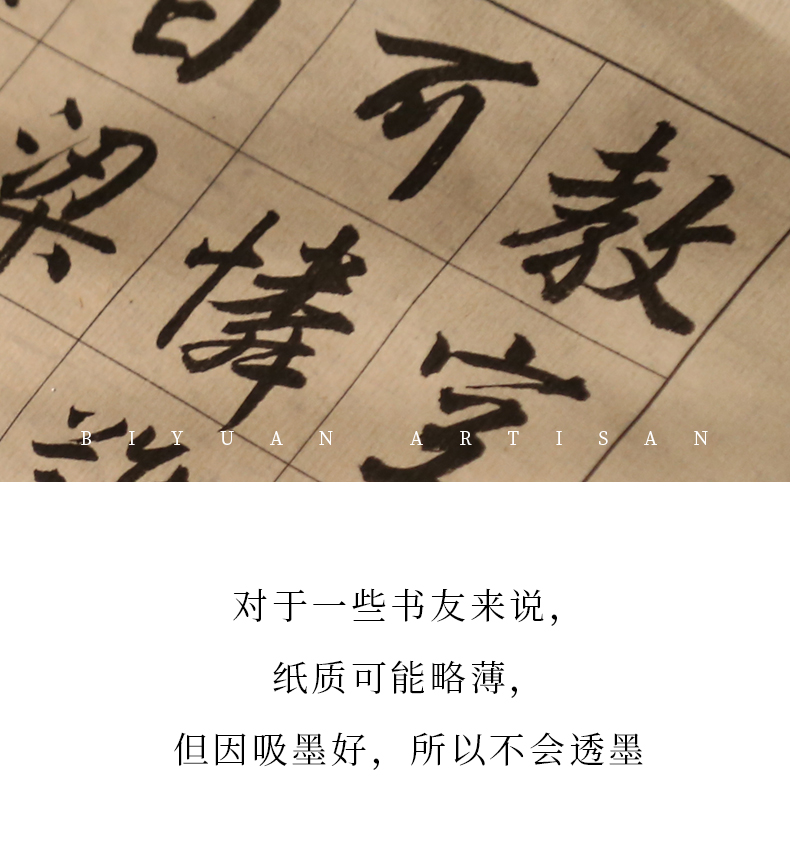 敖可日
字憐梁
BIYUAN ARTISAN
对于一些书友来说，
纸质可能略薄，
但因吸墨好，所以不会透墨